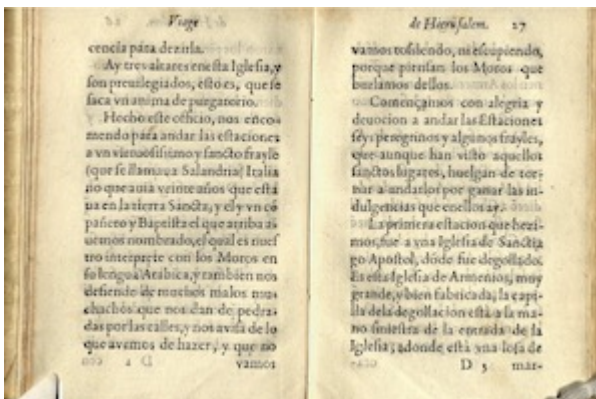 Viage
cencia para dezirla.
Ay tres altares en esta Iglesia, y
son preuilegiados, esto es, que se
saca vn anima de purgatorio.
Hecho este oficio, nos enco-
mendo para andar las estaciones
a vn virtuosissimo y sancto frayle
(que se llamaua Salandria) Italia
no que auia veinte años que esta
ua en la tierra Sancta, y el y vn cō
pañero y Baptista el que arriba a-
uemos nombrado, el qual es nues
tro interprete con los Moros en
su lengua Arabica, y tambien nos
defiende de muchos malos mu-
chachos que nos dan de pedra-
das por las calles, y nos auisa de lo
que avemos de hazer, y que no
D 2 vamos
de Hierusalem. 27
vamos tosiendo, ni escupiendo,
porque piensan los Moros que
burlamos dellos.
Començamos con alegria y
deuocion a andar las Estaciones
seys peregrinos y algunos frayles,
que aunque han visto aquellos
sanctos lugares, huelgan de tor-
nar a andarlos por ganar las in-
dulgencias que en ellos ay.
La primera estacion que hezi-
mos, fue a vna Iglesia de Sanctia
go Apostol, dōde fue degollado.
Es esta Iglesia de Armenios, muy
grande, y bien fabricada, la capi-
lla dela degollacion està a la ma-
no siniestra de la entrada de la
Iglesia, adonde està vna losa de
D 3 mar-